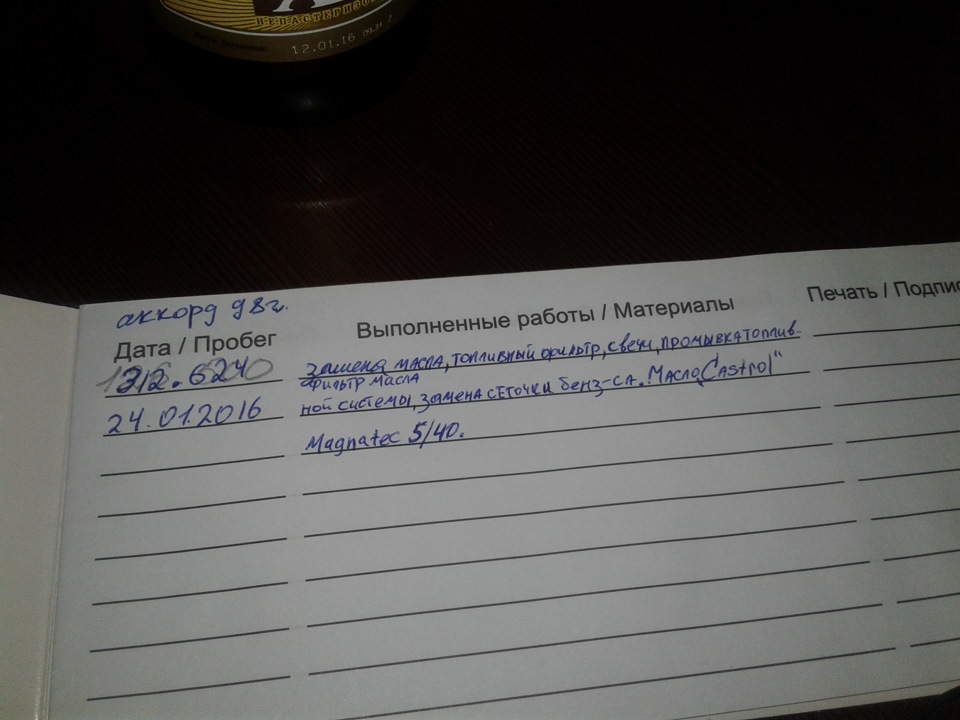 НЕПАСТЕРИЗО
12.01.16 09:24 2
аккорд 98г.
Дата / Пробег
Выполненные работы / Материалы
Печать / Подпис
212.6240
замена масла, топливный фильтр, свечи, промывка топлив-
фильтр масла
24.01.2016
ной системы, замена сеточки бенз-са. Масло „Castrol"
Magnatec 5/40.